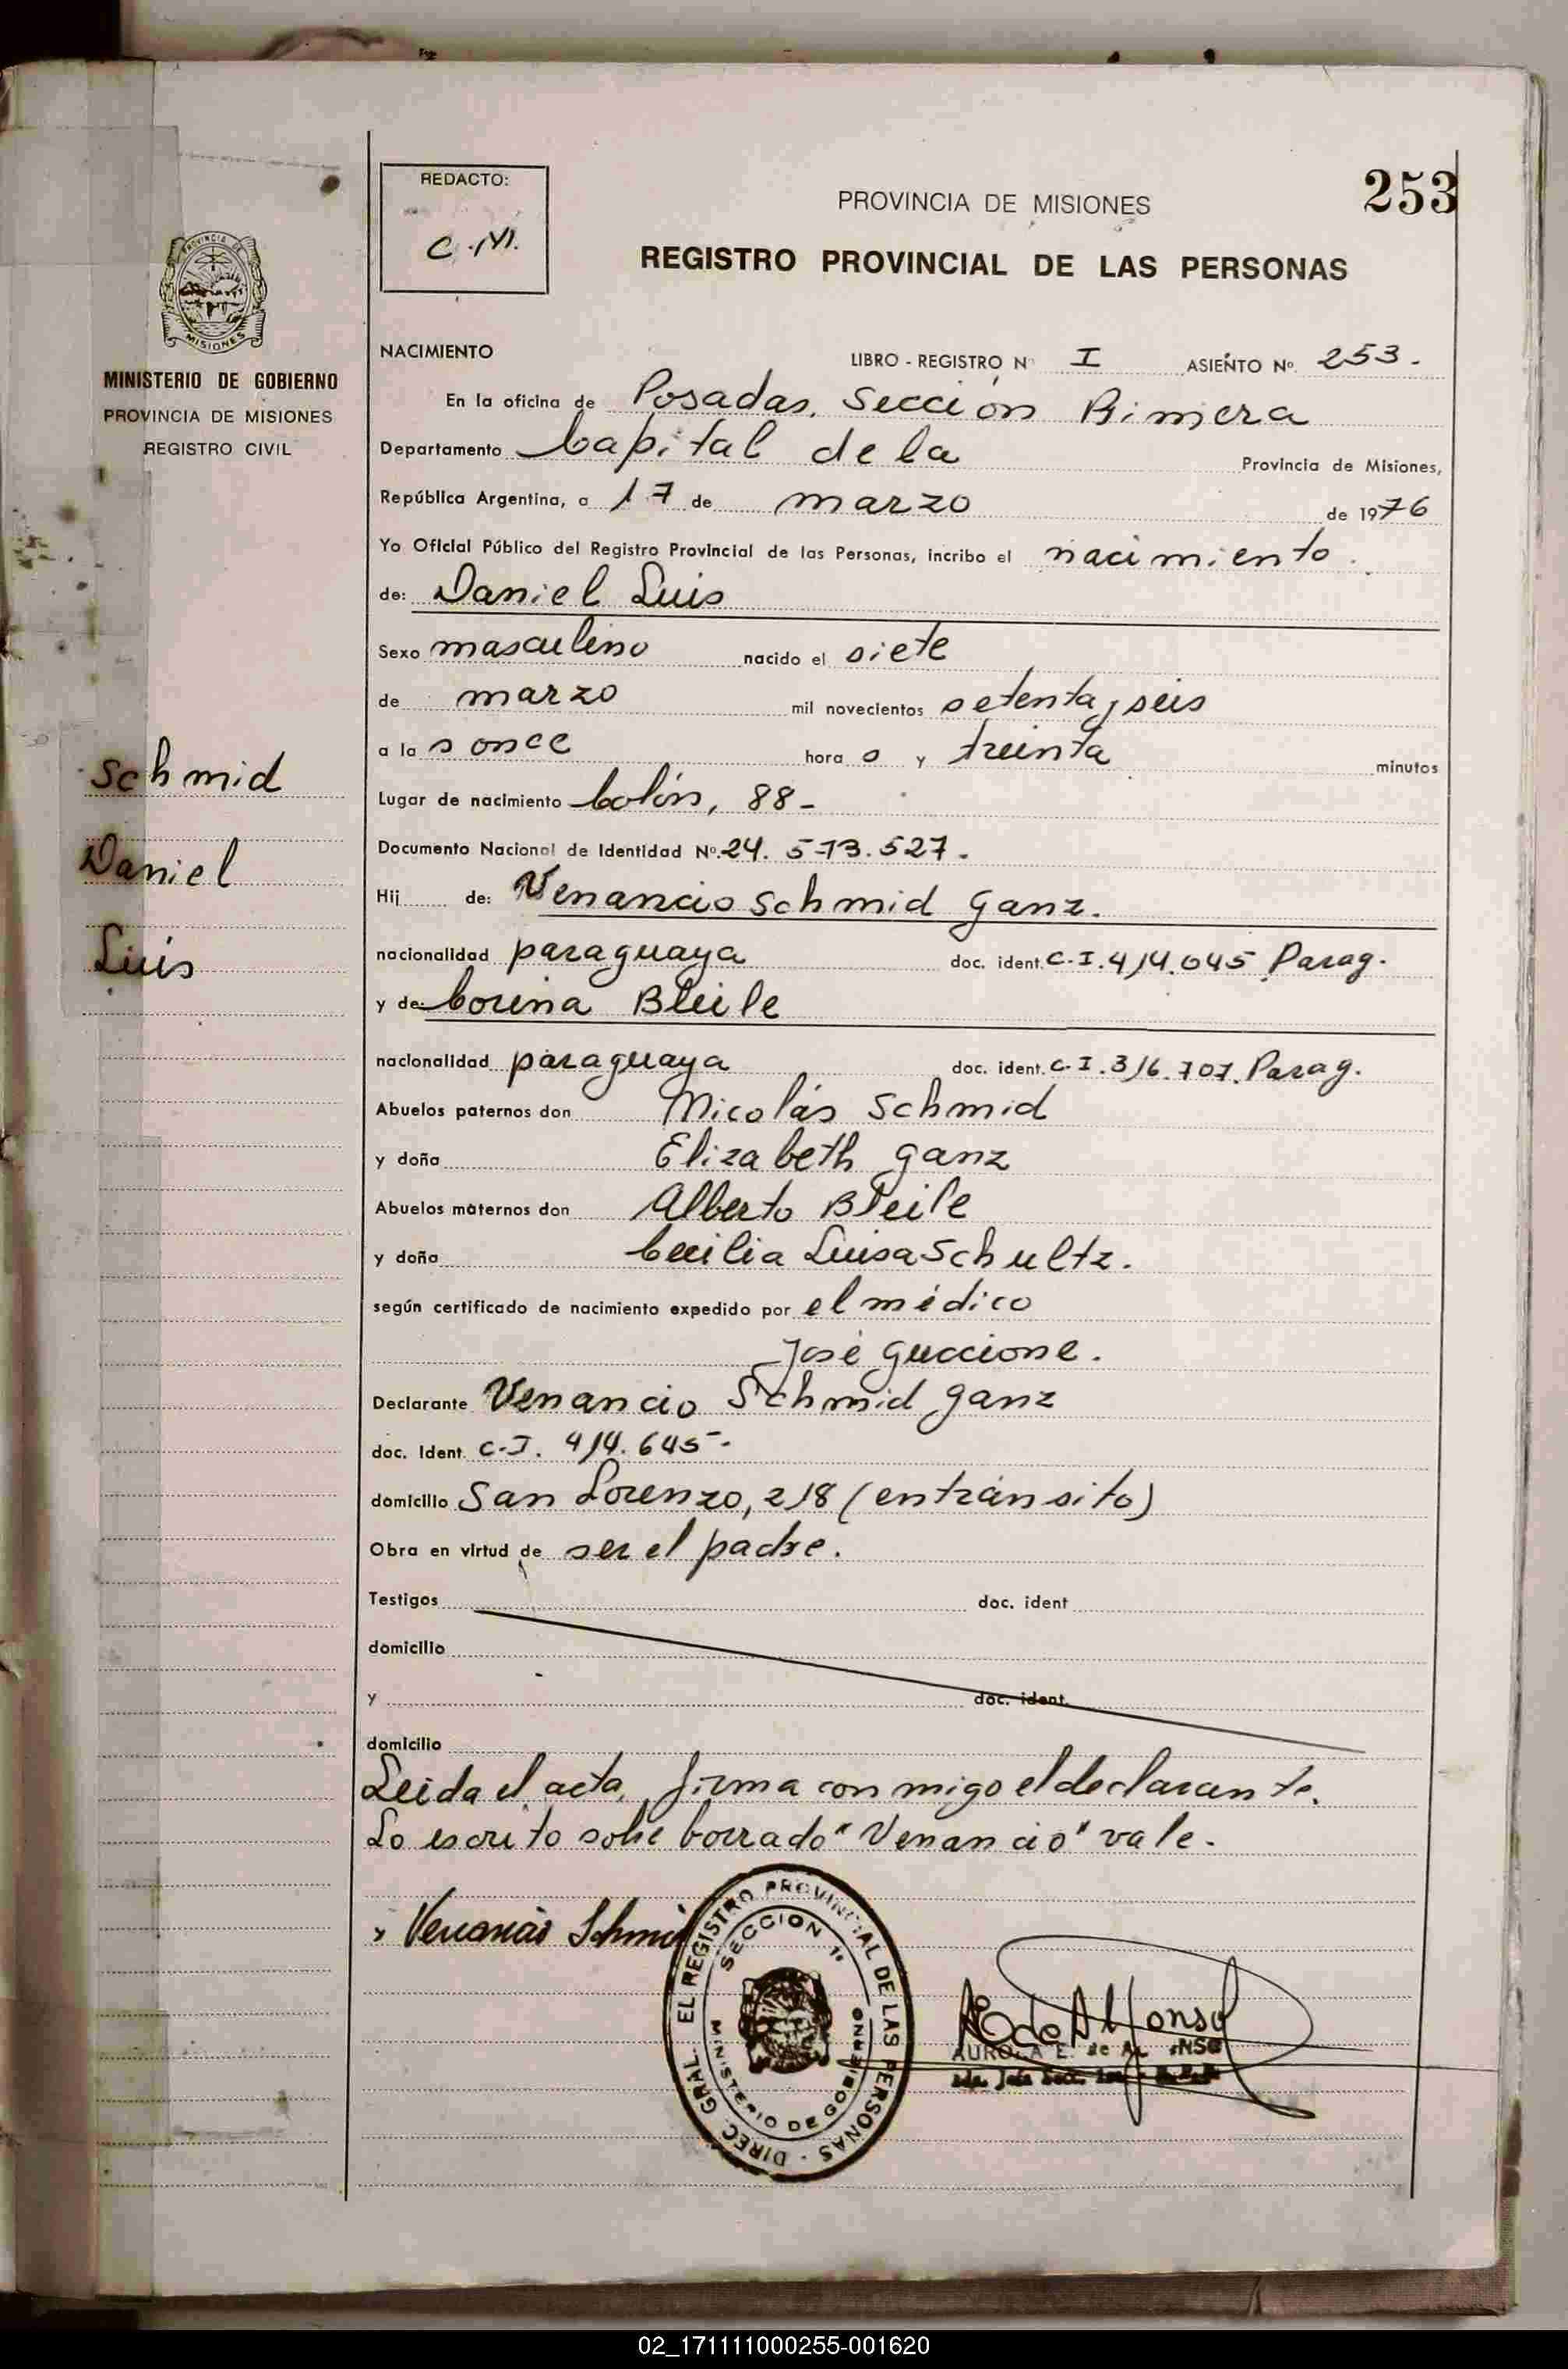 253
REDACTO:
C.M.
PROVINCIA DE MISIONES
REGISTRO PROVINCIAL DE LAS PERSONAS
PROVINCIA DE
MISIONES
MINISTERIO DE GOBIERNO
PROVINCIA DE MISIONES
REGISTRO CIVIL
Schmid
Daniel
Luis
NACIMIENTO LIBRO - REGISTRO Nº I ASIENTO Nº 253.
En la oficina de Posadas, Sección Primera
Departamento Capital de la Provincia de Misiones,
República Argentina, a 17 de marzo de 1976
Yo Oficial Público del Registro Provincial de las Personas, incribo el nacimiento
de: Daniel Luis
Sexo masculino nacido el siete
de marzo mil novecientos setenta y seis
a la s once hora s y treinta minutos
Lugar de nacimiento Colón, 88-
Documento Nacional de Identidad Nº 24. 573.527.
Hij de: Venancio Schmid Ganz.
nacionalidad paraguaya doc. ident. C.I. 414.645 Parag.
y de: Corina Bleile
nacionalidad paraguaya doc. ident. C.I. 316.707. Parag.
Abuelos paternos don Nicolás Schmid
y doña Elizabeth Ganz
Abuelos maternos don Alberto Bleile
y doña Cecilia Luisa Schultz.
según certificado de nacimiento expedido por el médico
José Guccione.
Declarante Venancio Schmid Ganz
doc. Ident. C.I. 414.645-.
domicilio San Lorenzo, 218 (en tránsito)
Obra en virtud de ser el padre.
Testigos doc. ident
domicilio
y doc. ident.
domicilio
Leida el acta, firma conmigo el declarante.
Lo escrito sobre borrado "Venancio" vale.
Venancio Schmid
DIREC. GRAL. EL REGISTRO PROVINCIAL DE LAS PERSONAS
SECCION 1ª
MINISTERIO DE GOBIERNO
de Alfonso
02_171111000255-001620